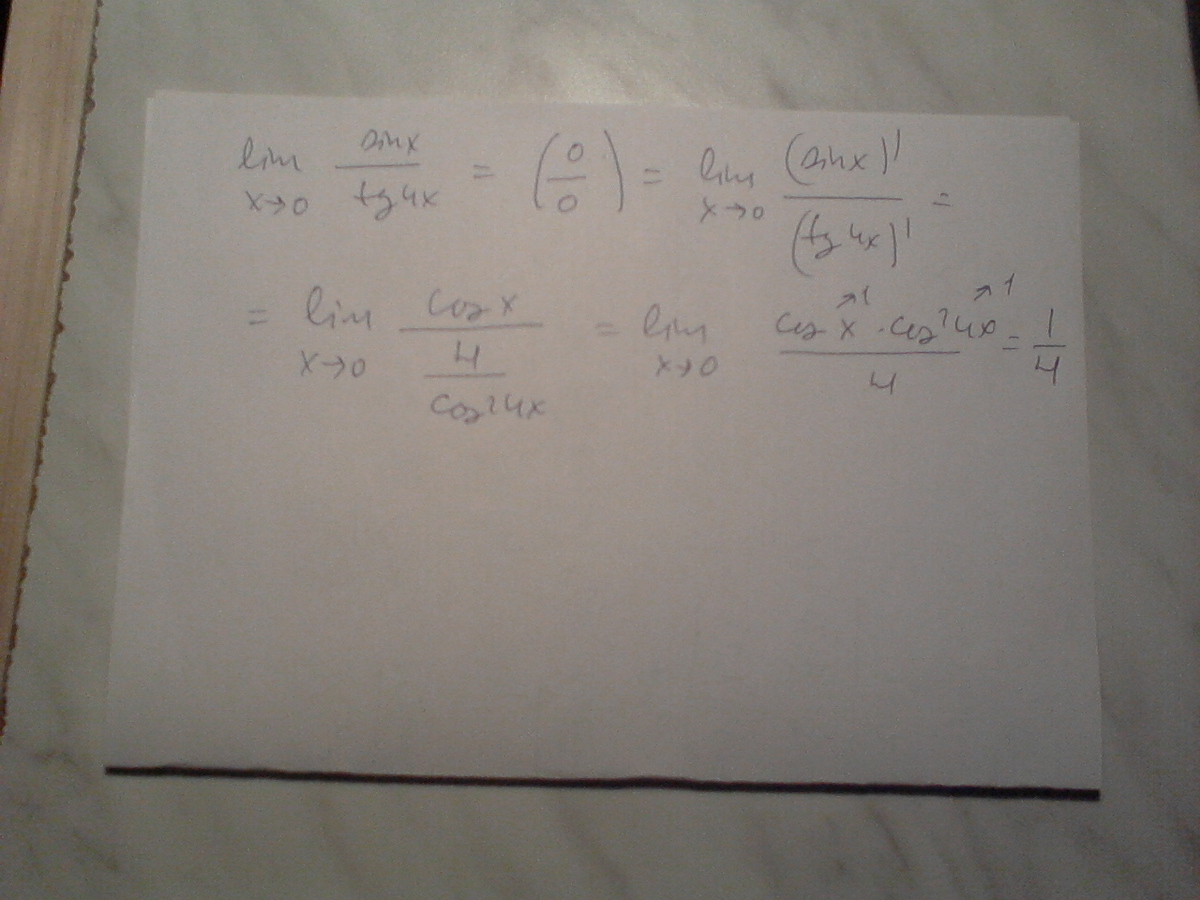 lim x→0 sin x / tg 4x = (0/0) = lim x→0 (sin x)' / (tg 4x)' =
= lim x→0 cos x / (4 / cos² 4x) = lim x→0 cos x ↗1 · cos² 4x ↗1 / 4 = 1/4